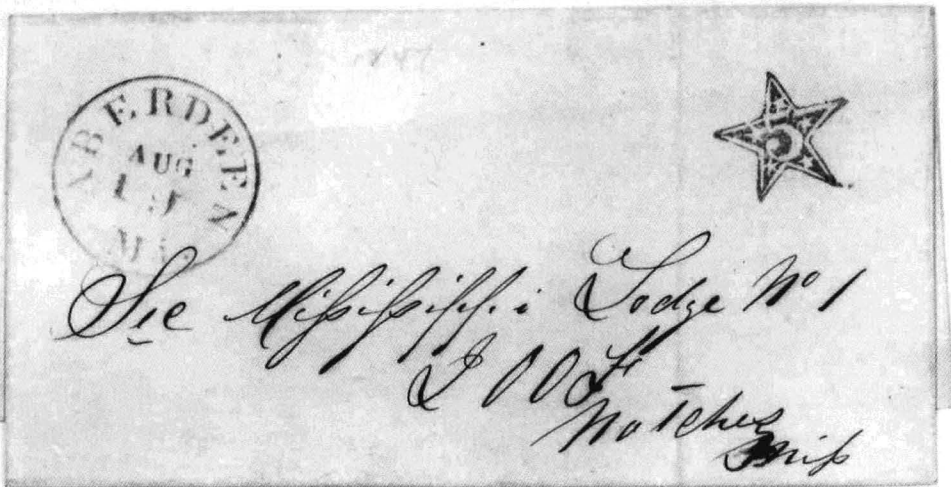 1847
ABERDEEN
AUG
Mi
5
Sec Mississippi Lodge No 1
I O O F
Natchez
Miss